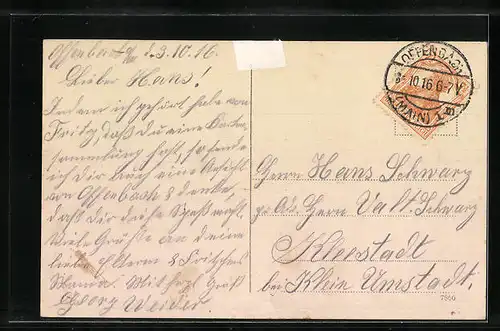 Offenbach d. 9.10.16
Lieber Hans!
Indem ich gehört habe von
Fritz, daß du eine Karten-
sammlung hast, so sende
ich dir auch eine Ansicht
von Offenbach & denke,
daß dir diese Spaß macht.
Viele Grüße an deine
lieben Eltern & Fritzchen
Mit herzl. Gruß
Georg Weider.
OFFENBACH
10.16 6-7 V
(MAIN) 1
Herrn Hans Schwarz
Herrn Valt. Schwarz
Kleestadt
bei Klein Umstadt.
7550